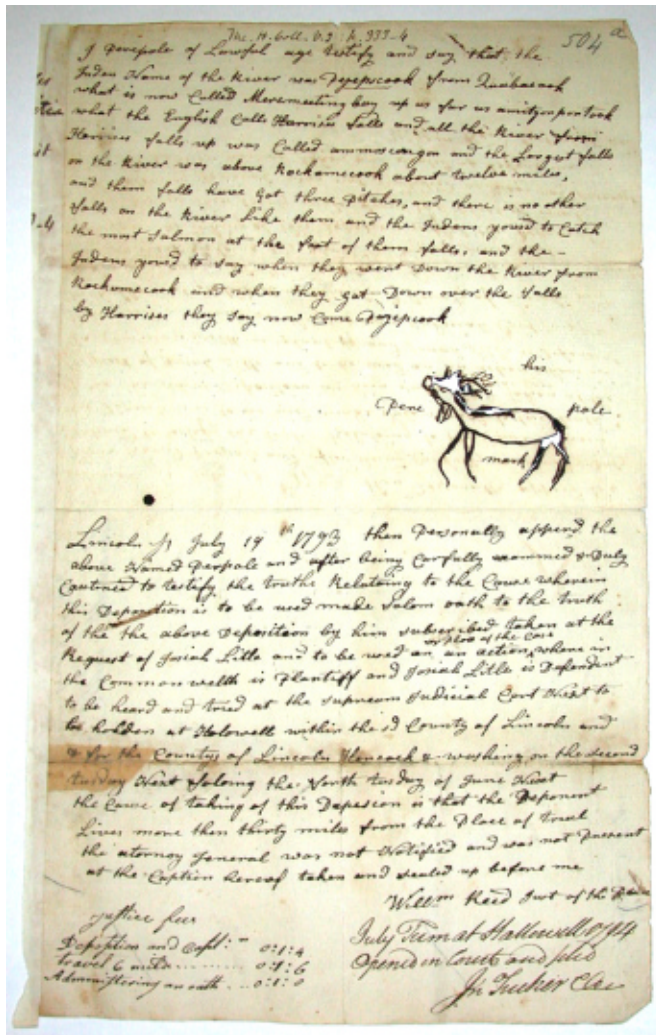 504 a
I Perepole of Lawful age testify and say that, the
Inden Name of the River was Pejepscook from Quabacook
what is now Called Meremeeting bay up as far as amitgonpontook
what the English Calls Harrises falls and all the River from
Harrises falls up was Called ammoscongon and the Largest falls
on the River was above Rockamecook about twelve miles,
and them falls have got three Pitches, and there is no other
falls on the River Like them and the Indens yousd to Catch
the most Salmon at the foot of them falls, and the -
Indens yousd to say when they went Down the River from
Rockamecook and when they got Down over the falls
by Harrises they say now Come Pejepscook
his
Pere pole
mark
Lincoln July 19 th 1793 then Personally append the
above Named Perpole and after being Carfully examined & Duly
Cautined to testify the truths Relating to the Cause wherein
this Deposition is to be used made Salom oath to the truth
of the the above Deposition by him subscribed taken at the
Request of Josiah Litle and to be used on an action of the Case where in
the Common wellth is Plantiff and Josiah Litle is Defendent
to be heard and tried at the supream Judicial Cort Next to
be holden at Holowell within the sd County of Lincoln and
& for the Countys of Lincoln Hancock & washing on the second
tusday Next foloing the forth tusday of June Next
the Cause of taking of this Depesion is that the Deponent
Lives more then thirty miles from the Place of trial
the atorney General was not Notified and was not Present
at the Caption hereof taken and sealed up before me
Willm Reed Just of the Peace
Justice fees
Deposition and Capt: 0:1:4
travel 6 mils 0:1:6
Administering an oath 0:1:0
July Term at Hallowell 1794
Opened in Court and filed
Jn Tucker Cler